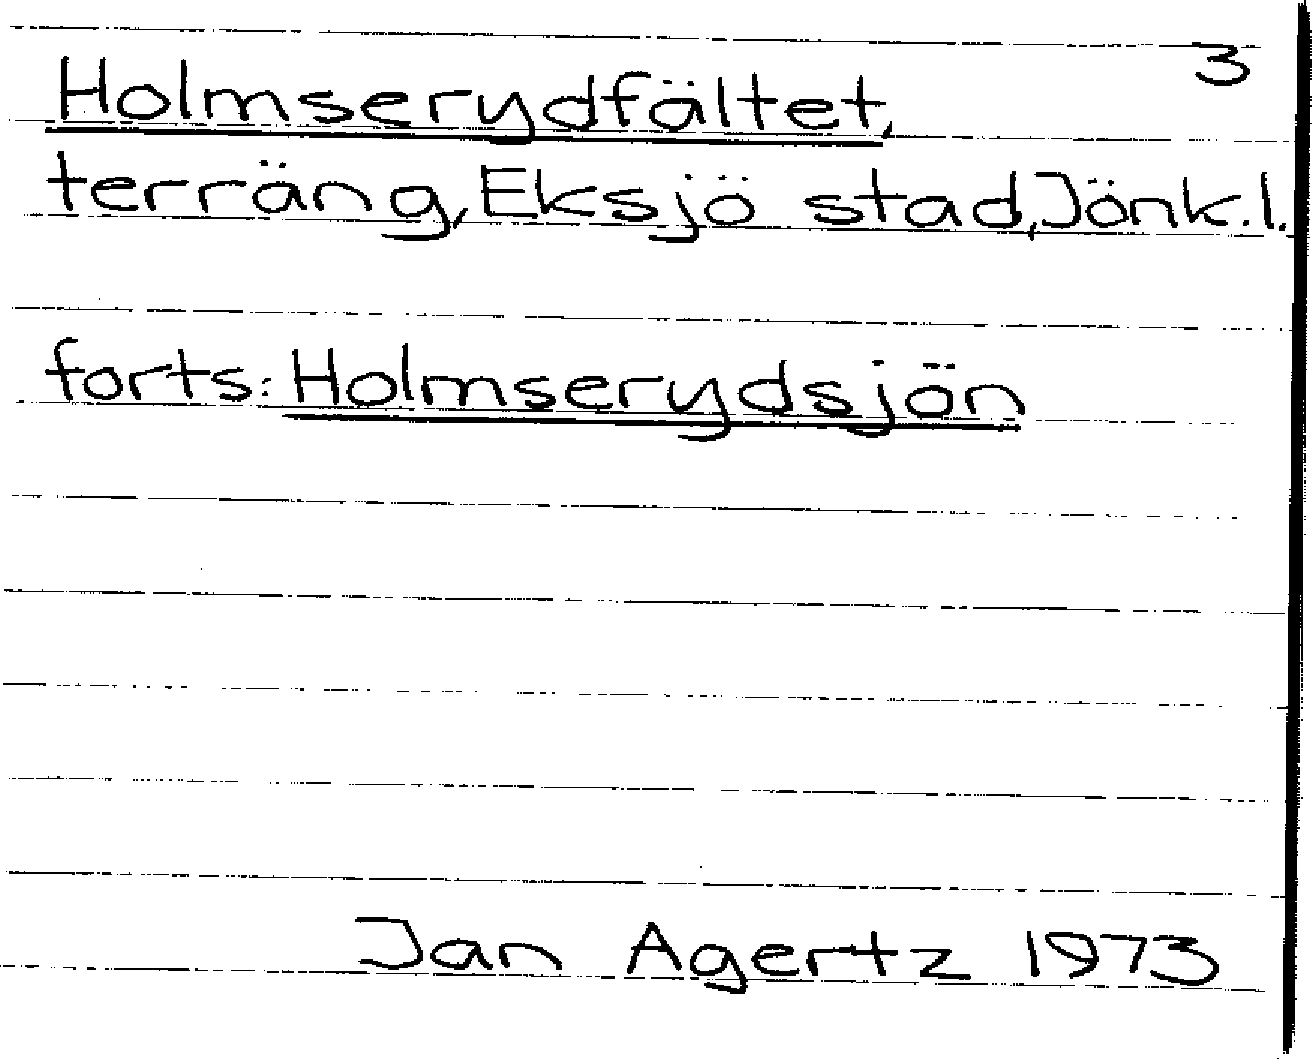 3
Holmserydfältet,
terräng, Eksjö stad, Jönk.l.
forts: Holmserydsjön
Jan Agertz 1973